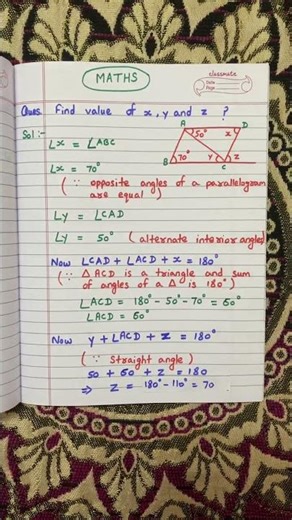 MATHS
classmate
Date
Page
Ques. Find value of x, y and z ?
Sol :-
∠x = ∠ABC
∠x = 70°
( ∵ opposite angles of a parallelogram
are equal )
A
D
50°
x
B
70°
y
z
C
∠y = ∠CAD
∠y = 50° ( alternate interior angles)
Now ∠CAD + ∠ACD + x = 180°
( ∵ △ ACD is a triangle and sum
of angles of a △ is 180°)
∠ACD = 180° - 50° - 70° = 60°
∠ACD = 60°
Now y + ∠ACD + z = 180°
( ∵ Straight angle )
50 + 60 + z = 180
⇒ z = 180° - 110° = 70